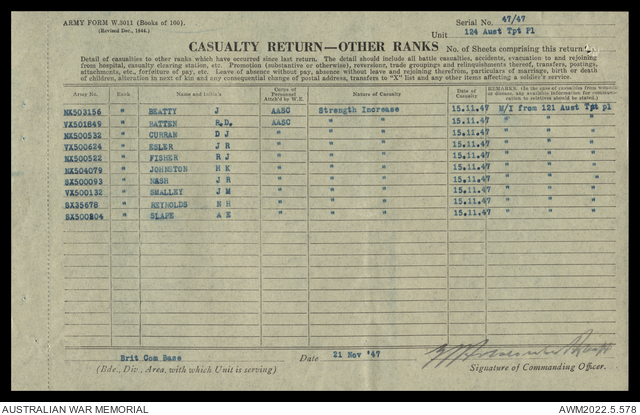 ARMY FORM W.3011 (Books of 100).
(Revised Dec., 1944.)
Serial No. 47/47
Unit 124 Aust Tpt Pl
CASUALTY RETURN—OTHER RANKS
No. of Sheets comprising this return
Detail of casualties to other ranks which have occurred since last return. The detail should include all battle casualties, accidents, evacuation to and rejoining
from hospital, casualty clearing station, etc. Promotion (substantive or otherwise), reversions, trade groupings and relinquishments thereof, transfers, postings,
attachments, etc., forfeiture of pay, etc. Leave of absence without pay, absence without leave and rejoining therefrom, particulars of marriage, birth or death
of children, alteration in next of kin and any consequential change of postal address, transfers to "X" list and any other items affecting a soldier's service.
Army No. Rank Name and Initials Corps of Personnel Attach'd by W.E. Nature of Casualty Date of Casualty REMARKS.
NX503156 " BEATTY J AASC Strength Increase 15.11.47 M/I from 121 Aust Tpt pl
VX501849 " BATTEN R.D. AASC " " 15.11.47 " " "
NX500532 " CURRAN D J " " " 15.11.47 " " "
VX500624 " ESLER J R " " " 15.11.47 " " "
NX500522 " FISHER R J " " " 15.11.47 " " "
NX504079 " JOHNSTON H K " " " 15.11.47 " " "
SX500093 " NASH J R " " " 15.11.47 " " "
VX500132 " SMALLEY J M " " " 15.11.47 " " "
SX35678 " REYNOLDS N H " " " 15.11.47 " " "
SX500204 " SLAPE A E " " " 15.11.47 " " "
Brit Com Base Date 21 Nov '47
(Bde., Div., Area, with which Unit is serving) Signature of Commanding Officer.
AUSTRALIAN WAR MEMORIAL AWM2022.5.578